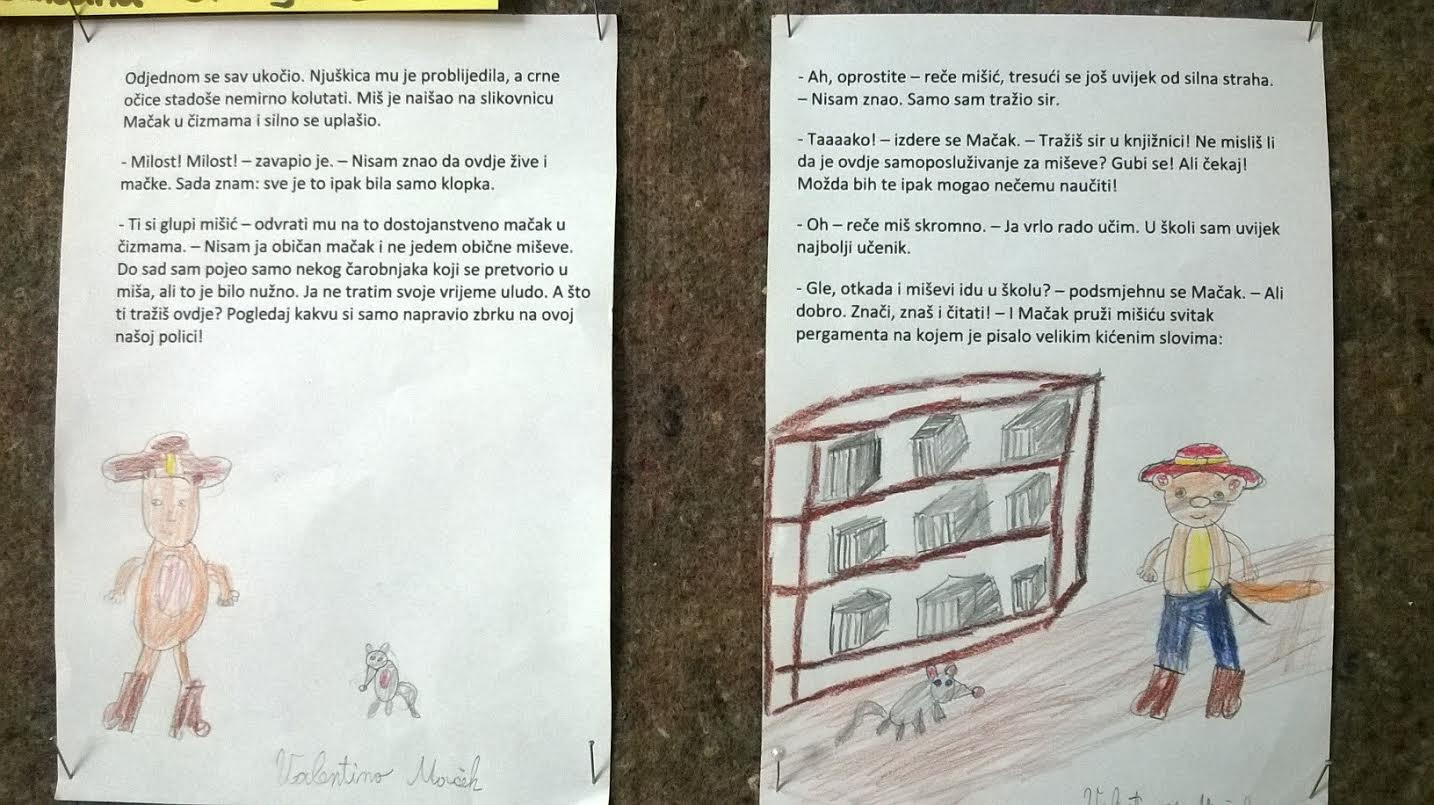 Odjednom se sav ukočio. Njuškica mu je problijedila, a crne
očice stadoše nemirno kolutati. Miš je naišao na slikovnicu
Mačak u čizmama i silno se uplašio.
- Milost! Milost! – zavapio je. – Nisam znao da ovdje žive i
mačke. Sada znam: sve je to ipak bila samo klopka.
- Ti si glupi mišić – odvrati mu na to dostojanstveno mačak u
čizmama. – Nisam ja običan mačak i ne jedem obične miševe.
Do sad sam pojeo samo nekog čarobnjaka koji se pretvorio u
miša, ali to je bilo nužno. Ja ne tratim svoje vrijeme uludo. A što
ti tražiš ovdje? Pogledaj kakvu si samo napravio zbrku na ovoj
našoj polici!
Valentino
- Ah, oprostite – reče mišić, tresući se još uvijek od silna straha.
– Nisam znao. Samo sam tražio sir.
- Taaaako! – izdere se Mačak. – Tražiš sir u knjižnici! Ne misliš li
da je ovdje samoposluživanje za miševe? Gubi se! Ali čekaj!
Možda bih te ipak mogao nečemu naučiti!
- Oh – reče miš skromno. – Ja vrlo rado učim. U školi sam uvijek
najbolji učenik.
- Gle, otkada i miševi idu u školu? – podsmjehnu se Mačak. – Ali
dobro. Znači, znaš i čitati! – I Mačak pruži mišiću svitak
pergamenta na kojem je pisalo velikim kićenim slovima: